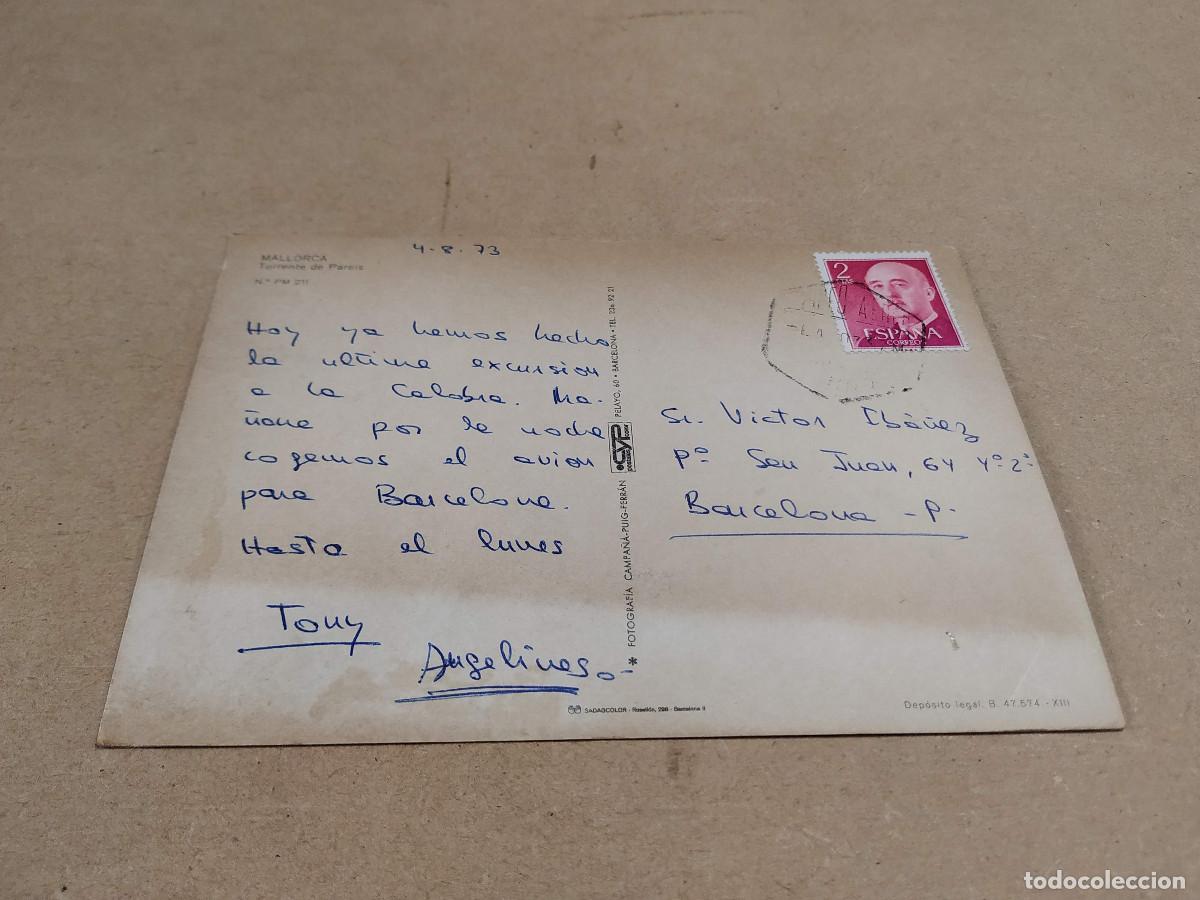 4-8-73
MALLORCA
Torrente de Pareis
N.º PM 211
Hoy ya hemos hecho
la ultima excursion
a la Calobra. Ma-
ñana por la noche
cogemos el avion
para Barcelona.
Hasta el lunes
Tony
Angelines
* FOTOGRAFÍA CAMPAÑÁ-PUIG-FERRÁN CYP PELAYO, 60 • BARCELONA • TEL. 236 92 21
2
PTAS
ESPAÑA
CORREOS
Sr. Victor Ibáñez
Pº San Juan, 64 4º 2ª
Barcelona -P-
SADAGCOLOR - Rosellón, 298 - Barcelona
Depósito legal, B. 47.574 - XIII
todocoleccion